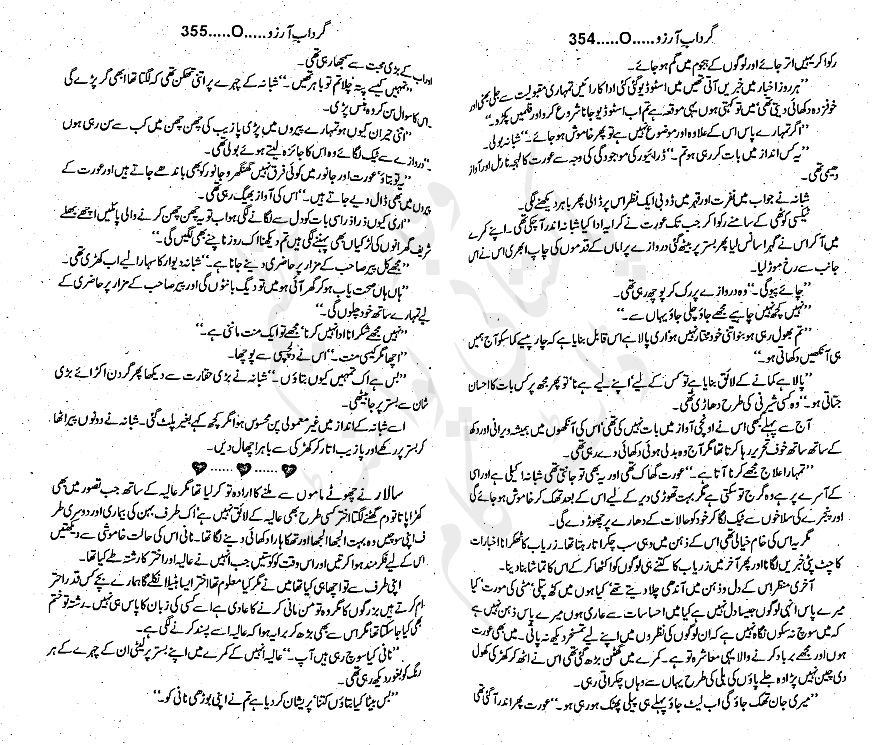 گرداب آرزو.....O.....354
رکوا کر یہیں اتر جائے اور لوگوں کے ہجوم میں گم ہو جائے۔
”ہر روز اخبار میں خبریں آتی تھیں میں اسٹوڈیو گئی کئی اداکارائیں تمہاری مقبولیت سے جلی بھنی اور
خوفزدہ دکھائی دیتی تھیں‘ میں تو کہتی ہوں یہی موقعہ ہے تم اب اسٹوڈیو جانا شروع کرو اور فلمیں پکڑو۔“
”اگر تمہارے پاس اس کے علاوہ اور موضوع نہیں ہے تو پھر خاموش ہو جائے۔“ شبانہ بولی۔
”یہ کس انداز میں بات کر رہی ہو تم۔“ ڈرائیور کی موجودگی کی وجہ سے عورت کا لہجہ نارمل اور آواز
دھیمی تھی۔
شبانہ نے جواب میں نفرت اور قہر میں ڈوبی ایک نظر اس پر ڈالی پھر باہر دیکھنے لگی۔
ٹیکسی کوٹھی کے سامنے رکوا کر جب تک عورت نے کرایہ ادا کیا شبانہ اندر آ چکی تھی۔ اپنے کمرے
میں آ کر اس نے گہرا سانس لیا پھر بستر پر بیٹھ گئی دروازے پر اماں کے قدموں کی چاپ ابھری اس نے اس
جانب سے رخ موڑ لیا۔
”چائے پیو گی۔“ وہ دروازے پر رک کر پوچھ رہی تھی۔
”نہیں کچھ نہیں چاہیے مجھے جاؤ چلی جاؤ یہاں سے۔“
”تم بھول رہی ہو‘ تم اتنی خود مختار نہیں ہو اری پالا ہے اس قابل بنایا ہے کہ چار پیسے کما سکو آج ہمیں
ہی آنکھیں دکھاتی ہو۔“
”پالا ہے کمانے کے لائق بنایا ہے تو کس کے لیے‘ اپنے لیے ہے نا‘ تو پھر مجھ پر کس بات کا احسان
جتاتی ہو۔“ وہ کسی شیرنی کی طرح دھاڑی تھی۔
آج سے پہلے بھی اس نے اونچی آواز میں بات نہیں کی تھی‘ اس کی آنکھوں میں ہمیشہ ویرانی اور دکھ
کے ساتھ ساتھ خوف تحریر رہا کرتا تھا مگر آج وہ بدلی ہوئی دکھائی دے رہی تھی۔
”تمہارا علاج مجھے کرنا آتا ہے۔“ عورت گھاگ تھی اور یہ بھی تو جانتی تھی شبانہ اکیلی ہے اور اسی
کے آسرے پر ہے وہ گرج تو سکتی ہے مگر بہت تھوڑی دیر کے لیے اس کے بعد تھک کر خاموش ہو جائے گی
اور پنجرے کی سلاخوں سے ٹیک لگا کر خود کو حالات کے دھارے پر چھوڑ دے گی۔
مگر یہ اس کی خام خیالی تھی اس کے ذہن میں وہی سب چکراتا رہتا تھا۔ زریاب کا ٹھکرانا اخبارات
کا چٹ پٹی خبریں لگانا اور پھر آخر میں زریاب کا کتنے ہی لوگوں کو اکٹھا کر کے اس کا تماشا بنا دینا۔
آخری منظر اس کے دل و ذہن میں آندھی چلا دیتے تھے‘ کیا ہوں میں کٹھ پتلی‘ مٹی کی مورت‘ کیا
میرے پاس انہی لوگوں جیسا دل نہیں ہے کیا میں احساسات سے عاری ہوں میرے پاس ذہن نہیں ہے
کہ میں سوچ نہ سکوں نگاہ نہیں ہے کہ ان لوگوں کی نظروں میں اپنے لیے تمسخر دیکھ نہ پاتی۔ میں بھی عورت
ہوں اور مجھے برباد کرنے والا یہی معاشرہ تو ہے۔ کمرے میں گھٹن بڑھ گئی تھی اس نے اٹھ کر کھڑکی کھول
دی چین نہیں پڑا وہ جلے پاؤں کی بلی کی طرح یہاں سے وہاں چکراتی رہی۔
”میری جان تھک جاؤ گی اب لیٹ جاؤ پہلے ہی پیلی پھٹک ہو رہی ہو۔“ عورت پھر اندر آ گئی تھی
گرداب آرزو.....O.....355
اور اب کے بڑی محبت سے سمجھا رہی تھی۔
”تمہیں کیسے پتہ چلا تم تو باہر تھیں۔“ شبانہ کے چہرے پر اتنی تھکن تھی کہ لگتا تھا ابھی گر پڑے گی
اس کا سوال سن کر وہ ہنس پڑی۔
”اتنی حیران کیوں ہو تمہارے پیروں میں پڑی پازیب کی چھن چھن میں کب سے سن رہی ہوں
۔“ دروازے سے ٹیک لگائے وہ اس کا جائزہ لیتے ہوئے بولی تھی۔
”یہ تو بتاؤ‘ عورت اور جانور میں کوئی فرق نہیں گھنگھرو جانور کو بھی باندھے جاتے ہیں اور عورت کے
پیروں میں بھی ڈال دیے جاتے ہیں۔“ اس کی آواز بھیگ رہی تھی۔
”اری کیوں ذرا ذرا سی بات کو دل سے لگانے لگی ہو اب تو یہ چھن چھن کرنے والی پائلیں اچھے بھلے
شریف گھرانوں کی لڑکیاں بھی پہننے لگی ہیں تم دیکھنا اک روز ناچنے بھی لگیں گی۔“
”مجھے کل پیر صاحب کے مزار پر حاضری دینے جانا ہے۔“ شبانہ دیوار کا سہارا لیے اب کھڑی تھی۔
”ہاں ہاں صحت یاب ہو کر گھر آئی ہو میں تو دیگ بانٹوں گی اور پیر صاحب کے مزار پر حاضری کے
لیے تمہارے ساتھ خود چلوں گی۔“
”نہیں مجھے شکرانا ادا نہیں کرنا‘ مجھے تو ایک منت ماننی ہے۔“
”اچھا مگر کیسی منت۔“ اس نے دلچسپی سے پوچھا۔
”بس ہے اک تمہیں کیوں بتاؤں۔“ شبانہ نے بڑی حقارت سے دیکھا پھر گردن اکڑائے بڑی
شان سے بستر پر جا بیٹھی۔
اسے شبانہ کے انداز میں غیر معمولی پن محسوس ہوا مگر کچھ کہے بغیر پلٹ گئی۔ شبانہ نے دونوں پیر اٹھا
کر بستر پر رکھے اور پازیب اتار کر کھڑکی سے باہر اچھال دیں۔
سالار نے چھوٹے ماموں سے ملنے کا ارادہ تو کر لیا تھا مگر عالیہ کے ساتھ جب تصور میں بھی
کھڑا پاتا تو دم گھٹنے لگتا اختر کسی طرح بھی عالیہ کے لائق نہیں ہے‘ اک طرف بہن کی بیماری اور دوسری طر
ف اپنی سوچیں وہ بہت الجھا الجھا اور تھکا ہارا دکھائی دینے لگا تھا۔ نانی اس کی حالت خاموشی سے دیکھتیں
اس کے لیے فکر مند ہوا کرتیں اور اس وقت کو کوستیں جب انہیں نے عالیہ اور اختر کا رشتہ طے کیا تھا۔
اپنی طرف سے تو اچھا ہی کیا تھا میں نے مگر کیا معلوم تھا اختر ایسا ہٹیلا نکلے گا ہمارے بچے کس قدر احتر
ام کرتے ہیں بزرگوں کا مگر وہ تو من مانی کرنے کا عادی ہے اسے کسی کی زبان کا پاس ہی نہیں۔ رشتہ تو ختم
بھی کیا جا سکتا تھا مگر اس سے بھی بڑھ کر برا یہ ہوا کہ عالیہ اسے پسند کرنے لگی ہے۔
”نانی کیا سوچ رہی ہیں آپ۔“ عالیہ انہیں کے کمرے میں اپنے بستر پر لیٹی ان کے چہرے کے ہر
رنگ کو بغور دیکھ رہی تھی۔
”بس بیٹا کیا بتاؤں کتنا‘ پریشان کر دیا ہے تم نے اپنی بوڑھی نانی کو۔“